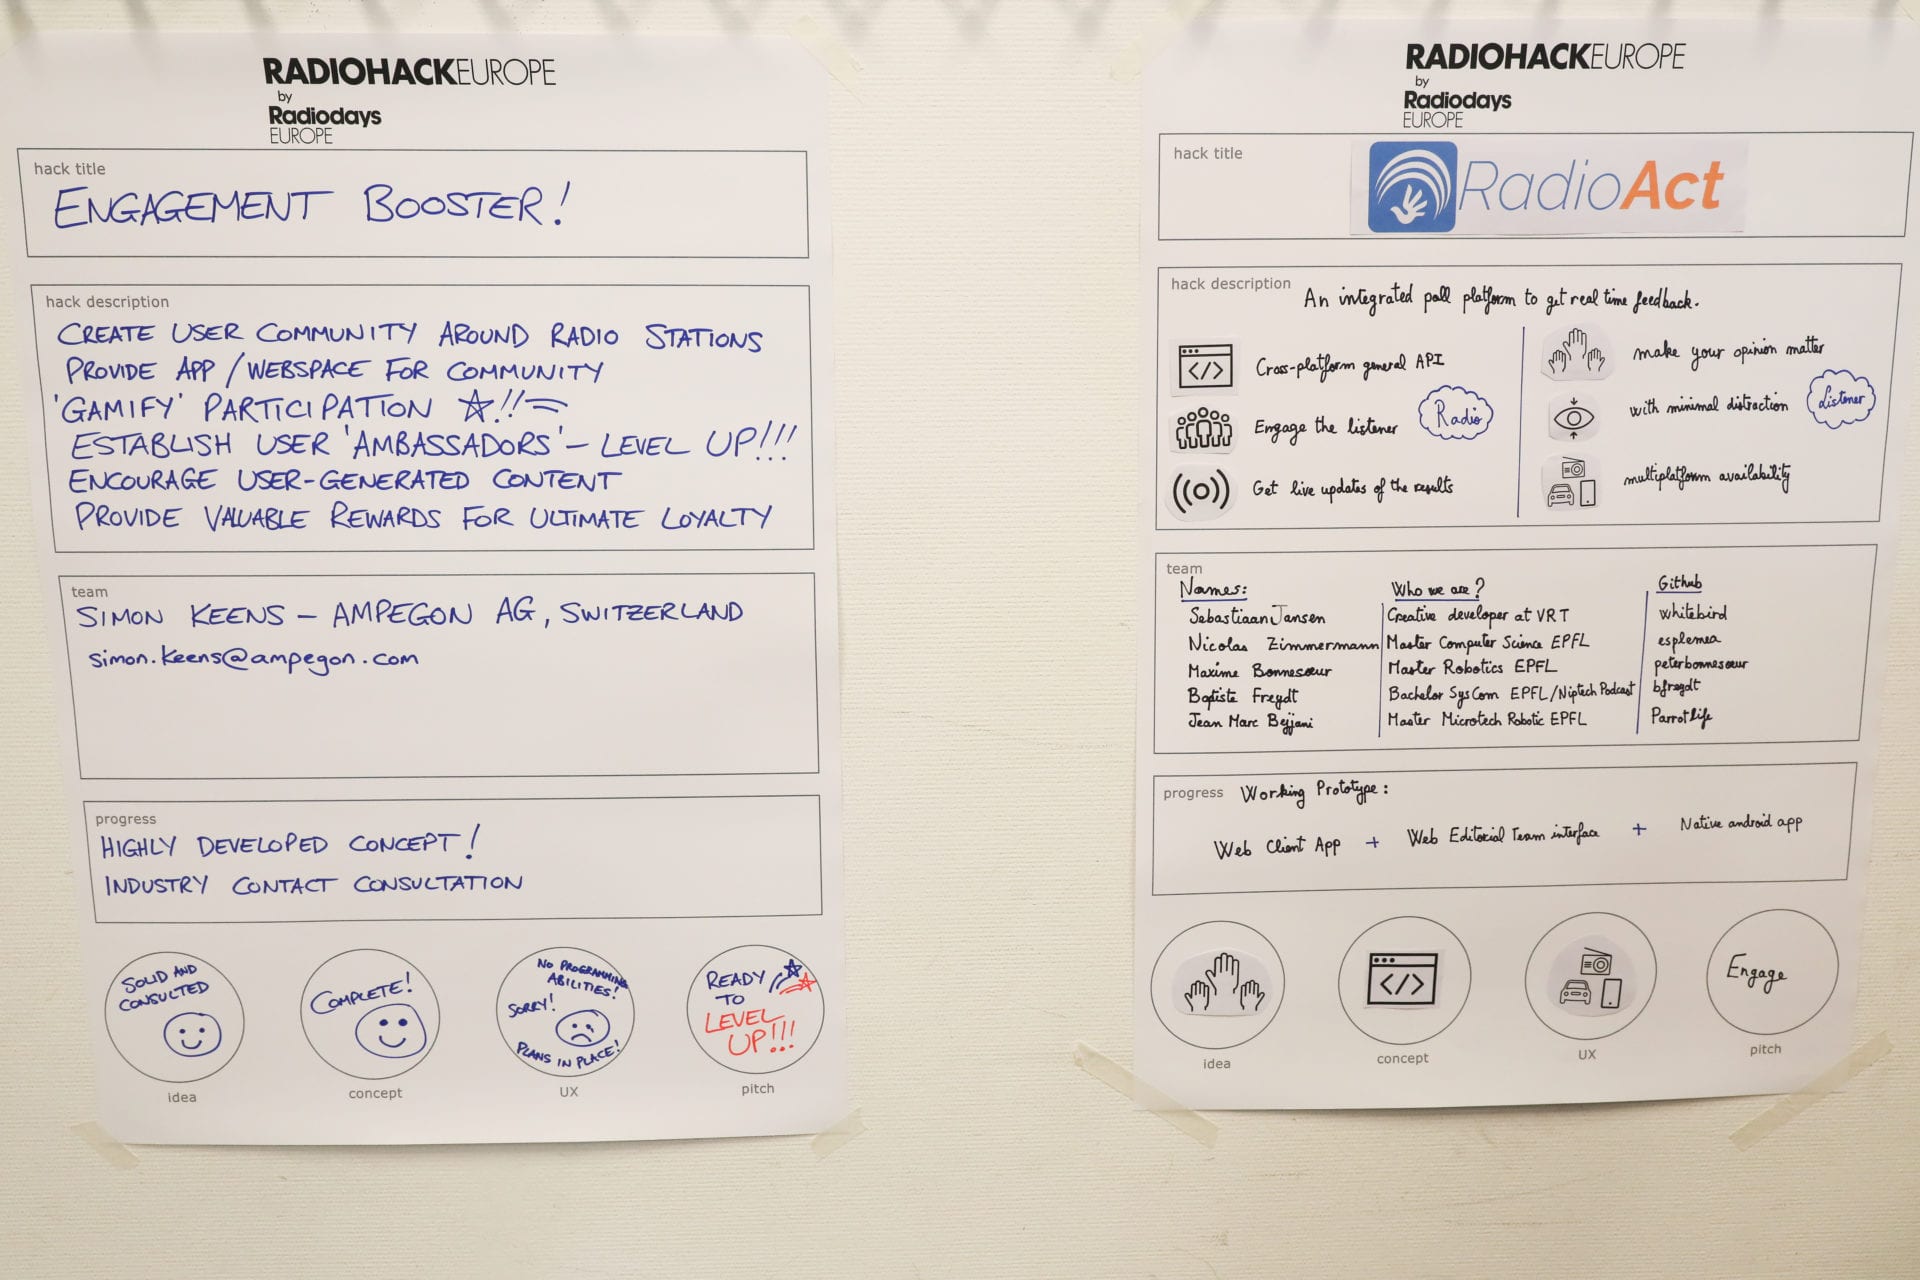 RADIOHACKEUROPE
by
Radiodays
EUROPE
hack title
ENGAGEMENT BOOSTER!
hack description
CREATE USER COMMUNITY AROUND RADIO STATIONS
PROVIDE APP / WEBSPACE FOR COMMUNITY
'GAMIFY' PARTICIPATION !!
ESTABLISH USER 'AMBASSADORS' – LEVEL UP!!!
ENCOURAGE USER-GENERATED CONTENT
PROVIDE VALUABLE REWARDS FOR ULTIMATE LOYALTY
team
SIMON KEENS – AMPEGON AG, SWITZERLAND
simon.keens@ampegon.com
progress
HIGHLY DEVELOPED CONCEPT!
INDUSTRY CONTACT CONSULTATION
SOLID AND
CONSULTED
idea
COMPLETE!
concept
NO PROGRAMMING
ABILITIES!
SORRY!
PLANS IN PLACE!
UX
READY
TO
LEVEL
UP!!!
pitch
RADIOHACKEUROPE
by
Radiodays
EUROPE
hack title
RadioAct
hack description
An integrated poll platform to get real time feedback.
</>
Cross-platform general API
Engage the listener
Radio
Get live updates of the results
make your opinion matter
with minimal distraction
Listener
multiplatform availability
team
Names: Who we are? Github
Sebastiaan Jansen Creative developer at VRT whitebird
Nicolas Zimmermann Master Computer Science EPFL esplemea
Maxime Bonnesoeur Master Robotics EPFL peterbonnesoeur
Baptiste Freydt Bachelor SysCom EPFL/Niptech Podcast bfreydt
Jean Marc Bejjani Master Microtech Robotic EPFL Parrotlife
progress
Working Prototype:
Web Client App + Web Editorial Team interface + Native android app
idea
</>
concept
UX
Engage
pitch